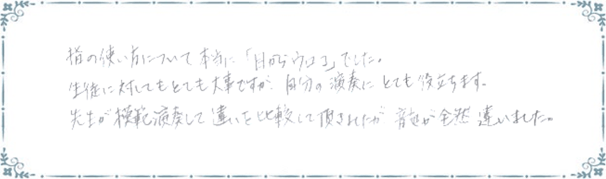 指の使い方について本当に「目からウロコ」でした。
生徒に対してもとても大事ですが、自分の演奏にとても役立ちます。
先生が模範演奏して違いを比較して頂きましたが音色が全然違いました。